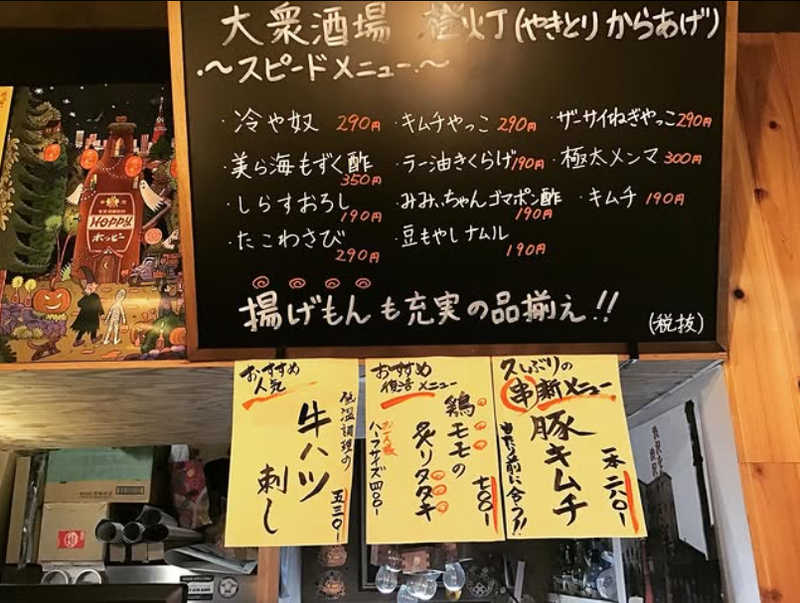 大衆酒場 橙灯(やきとり からあげ)
・〜スピードメニュー・〜
・冷や奴 290円 ・キムチやっこ 290円 ・ザーサイねぎやっこ 290円
・美ら海もずく酢 350円 ・ラー油きくらげ 190円 ・極太メンマ 300円
・しらすおろし 190円 ・みみちゃんゴマポン酢 190円 ・キムチ 190円
・たこわさび 290円 ・豆もやしナムル 190円
揚げもんも充実の品揃え!!
(税抜)
HOPPY
ホッピー
おすすめ
人気
低温調理の
牛ハツ
刺し
五三〇-
おすすめ
復活メニュー
鶏モモの
炙りタタキ
七〇〇-
ハーフサイズ四〇〇-
久しぶりの
串新メニュー
豚キムチ
一本 二六〇-
当たり前に合う!!